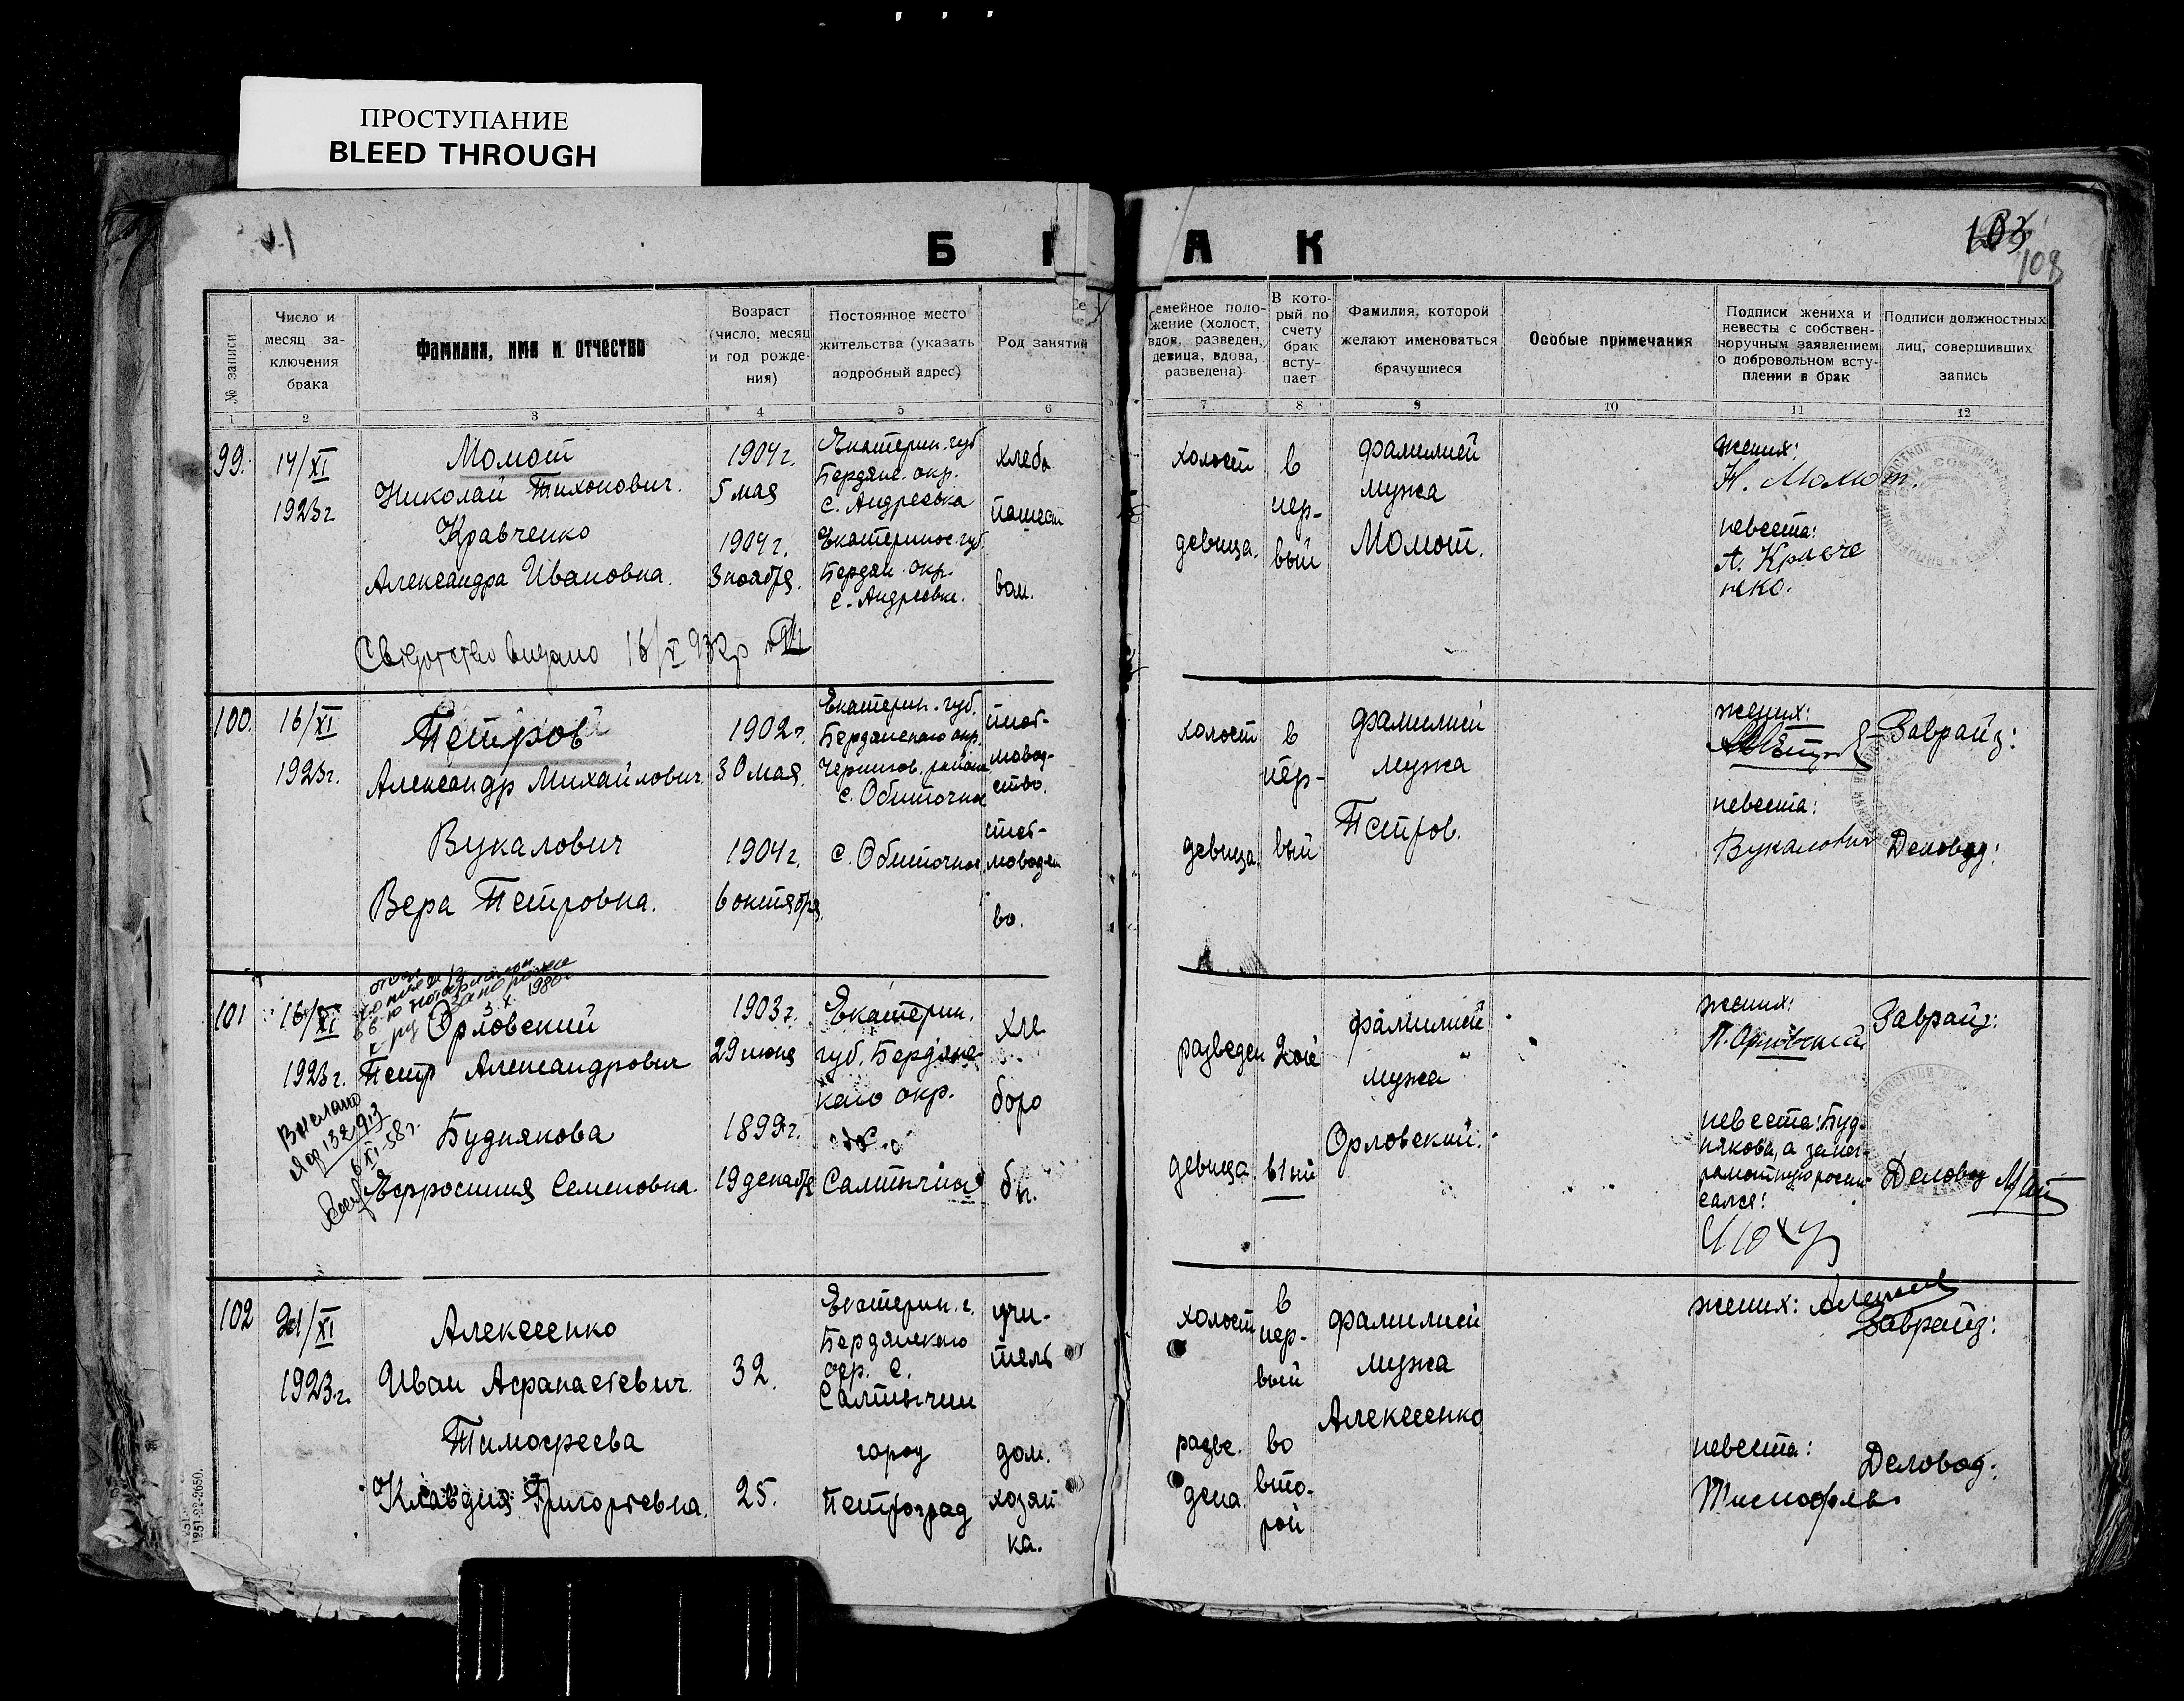 ПРОСТУПАНИЕ
BLEED THROUGH
Б
А К
103
108
№ записи
Число и
месяц за-
ключения
брака
Фамилия, имя и отчество
Возраст
(число, месяц
и год рожде-
ния)
Постоянное место
жительства (указать
подробный адрес)
Род занятий
Се
емейное поло-
жение (холост,
вдов, разведен,
девица, вдова,
разведена)
В кото-
рый по
счету
брак
всту-
пает
Фамилия, которой
желают именоваться
брачущиеся
Особые примечания
Подписи жениха и
невесты с собствен-
норучным заявлением
о добровольном всту-
плении в брак
Подписи должностных
лиц, совершивших
запись
1 2 3 4 5 6 7 8 9 10 11 12
99.
14/XI
1923г
Момот
Николай Тихонович.
Кравченко
Александра Ивановна.
1904г.
5 мая
1904г.
3 ноября.
Екатерин. губ
Бердянс. окр.
с. Андреевка
Екатеринос. губ.
Бердян. окр.
с. Андреевк.
хлебо
пашест
вом.
холост
девица.
в
пер-
вый
фамилией
мужа
Момот.
жених:
Н. Момот.
невеста:
А. Кравче
нко.
16/X
100.
16/XI
1923г.
Петров
Александр Михайлович.
Вукалович
Вера Петровна.
1902г.
30 мая.
1904г.
6 октября.
Екатерин. губ.
Бердянского окр.
Чернигов. района
с. Обиточное
с. Обиточное
мовод-
ство.
моводст
во.
холост
девица
в
пер-
вый
фамилией
мужа
Петров.
жених:
невеста:
Вукалович
Заврайз:
Деловод:
101
16/XI
1923г.
1980г
Орловский
Петр Александрович
Будникова
Ефросиния Семеновна.
Выслано
132913
6 XI-58г.
1903г.
29 июня
1899г.
19 декабр
Екатерин.
губ. Бердянс-
кого окр.
с.
Салтычия
хле
боро
бы.
разведен
девица
2ой
в 1ый
фамилией
мужа
Орловский.
жених:
П. Орловский
невеста: Буд-
някова, а за нег-
рамотную роспи-
сался:
Заврайз:
Деловод
102
21/XI
1923г.
Алексеенко
Иван Афанасьевич.
Тимофеева
Клавдия Григорьевна.
32.
25.
Екатерин. г.
Бердянского
окр. с.
Салтычии
город
Петроград
учи-
тель
дом.
хозяй
ка.
холост
разве.
дена.
в
пер-
вый
во
вто-
рой
фамилией
мужа
Алексеенко
жених:
невеста:
Заврайз:
Деловод:
1251-22-2650.